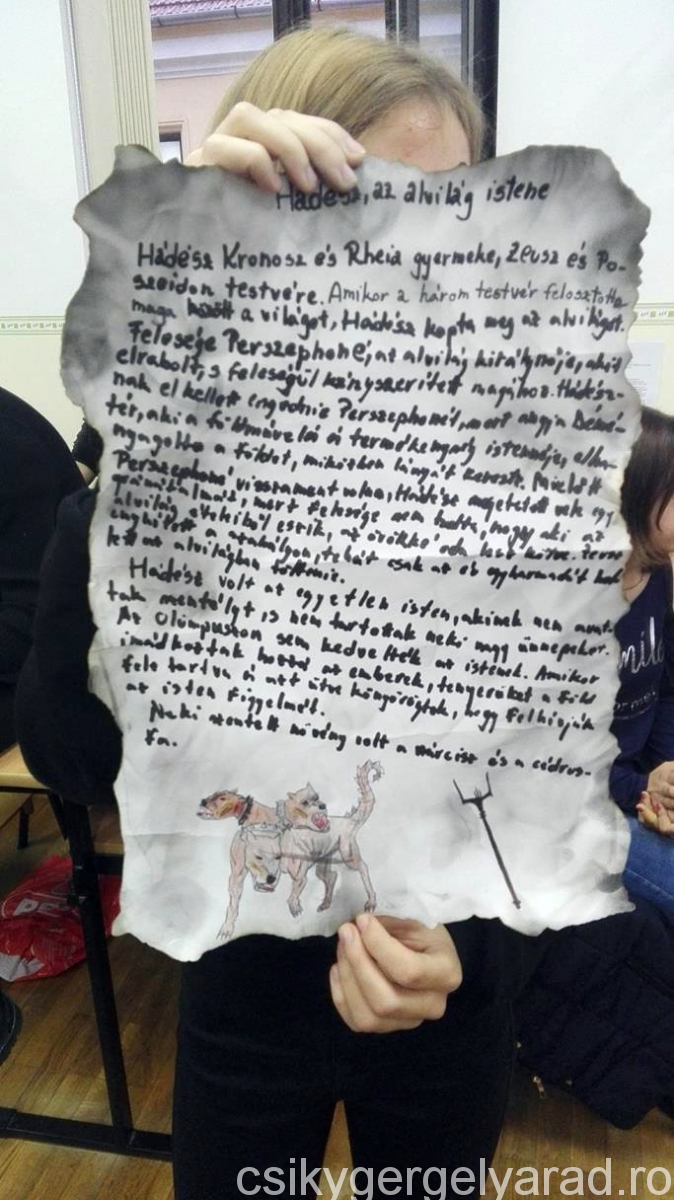 Hádész, az alvilág istene
Hádész Kronosz és Rheia gyermeke, Zeusz és Po-
szeidon testvére. Amikor a három testvér felosztotta
maga között a világot, Hádész kapta meg az alvilágot.
Felesége Perszephoné, az alvilág királynője, akit
elrabolt, s feleségül kényszerített magához. Hádész-
nak el kellett engednie Perszephonét, mert anyja Démé-
tér, aki a földművelés és termékenység istennője, elha-
nyagolta a földet, miközben lányát kereste. Mielőtt
Perszephoné visszament volna, Hádész megetetett vele egy
gránátalmát, mert felesége nem tudta, hogy aki az
alvilág étekéből eszik, az örökké oda lesz kötve. Zeusz
enyhített a szabályon, tehát csak az év egyharmadát kel-
lett az alvilágban töltenie.
Hádész volt az egyetlen isten, akinek nem avat-
tak mentélyt is nem tartottak neki nagy ünnepeket.
Az Olümposzon sem kedvelték az istenek. Amikor
imádkoztak hozzá az emberek, tenyerüket a föld
fele tartva és azt ütve könyörögtek, hogy felhívják
az isten figyelmét.
Neki szentelt növény volt a nárcisz és a cédrus-
fa.
csikygergelyarad.ro